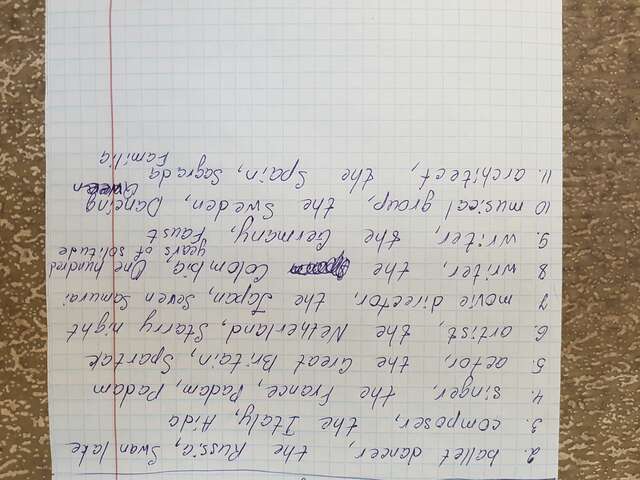 2. ballet dancer, the Russia, Swan lake
3. composer, the Italy, Aida
4. singer, the France, Padam, Padam
5. actor, the Great Britain, Spartak
6. artist, the Netherland, Starry night
7 movie director, the Japan, Seven Samurai
8 writer, the Colombia One hundred
years of solitude
9. writer, the Germany, Faust
10 musical group, the Sweden, Dancing
Queen
11. architect, the Spain, Sagrada
Familia